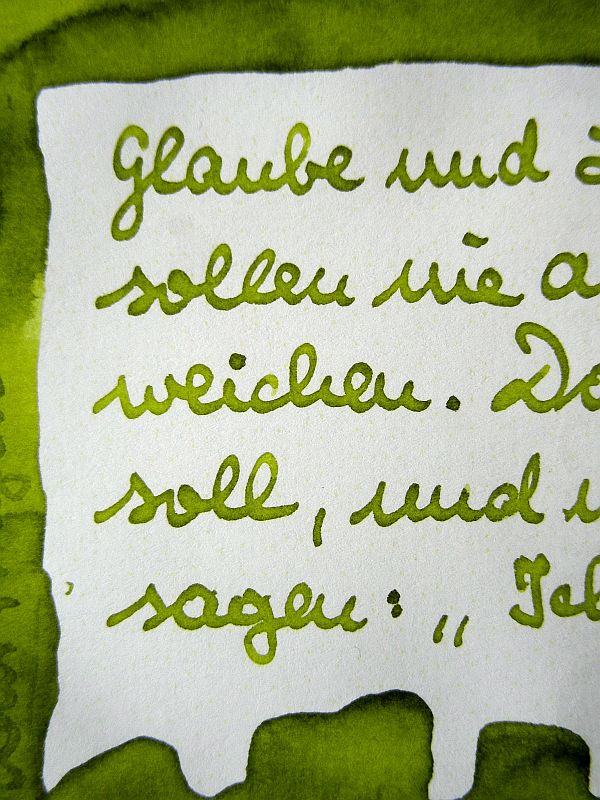 Glaube und
sollen nie a
weichen. Do
soll, und
sagen: „ Ich